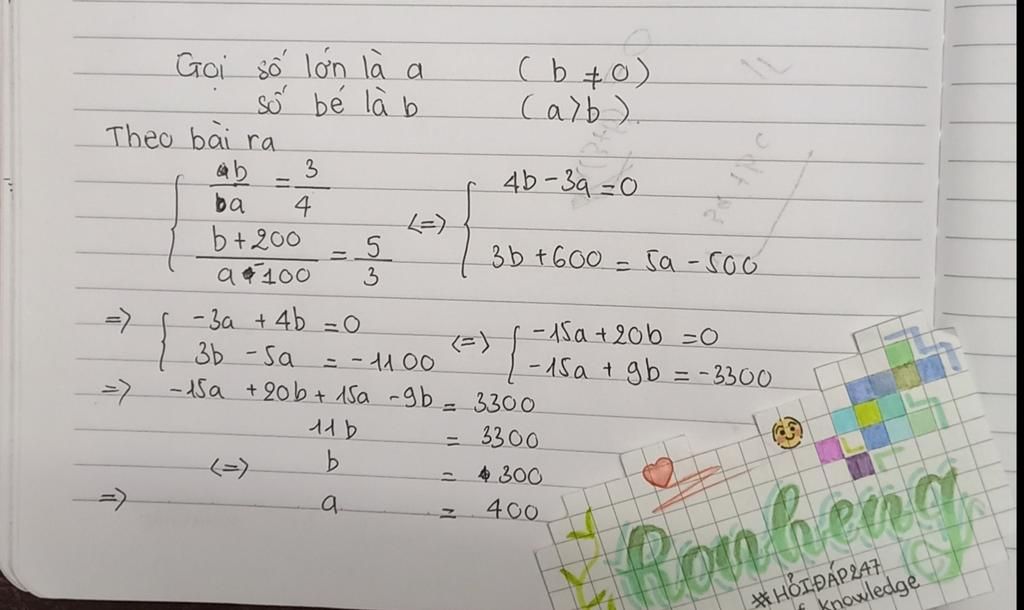 Gọi số lớn là a (b ≠ 0)
số bé là b (a>b).
Theo bài ra
{ b/a = 3/4 <=> { 4b - 3a = 0
b+200 / a-100 = 5/3 3b + 600 = 5a - 500
=> { -3a + 4b = 0 <=> { -15a + 20b = 0
3b - 5a = -1100 -15a + 9b = -3300
=> -15a + 20b + 15a - 9b = 3300
11b = 3300
<=> b = 300
=> a = 400
#HỎIĐÁP247
knowledge